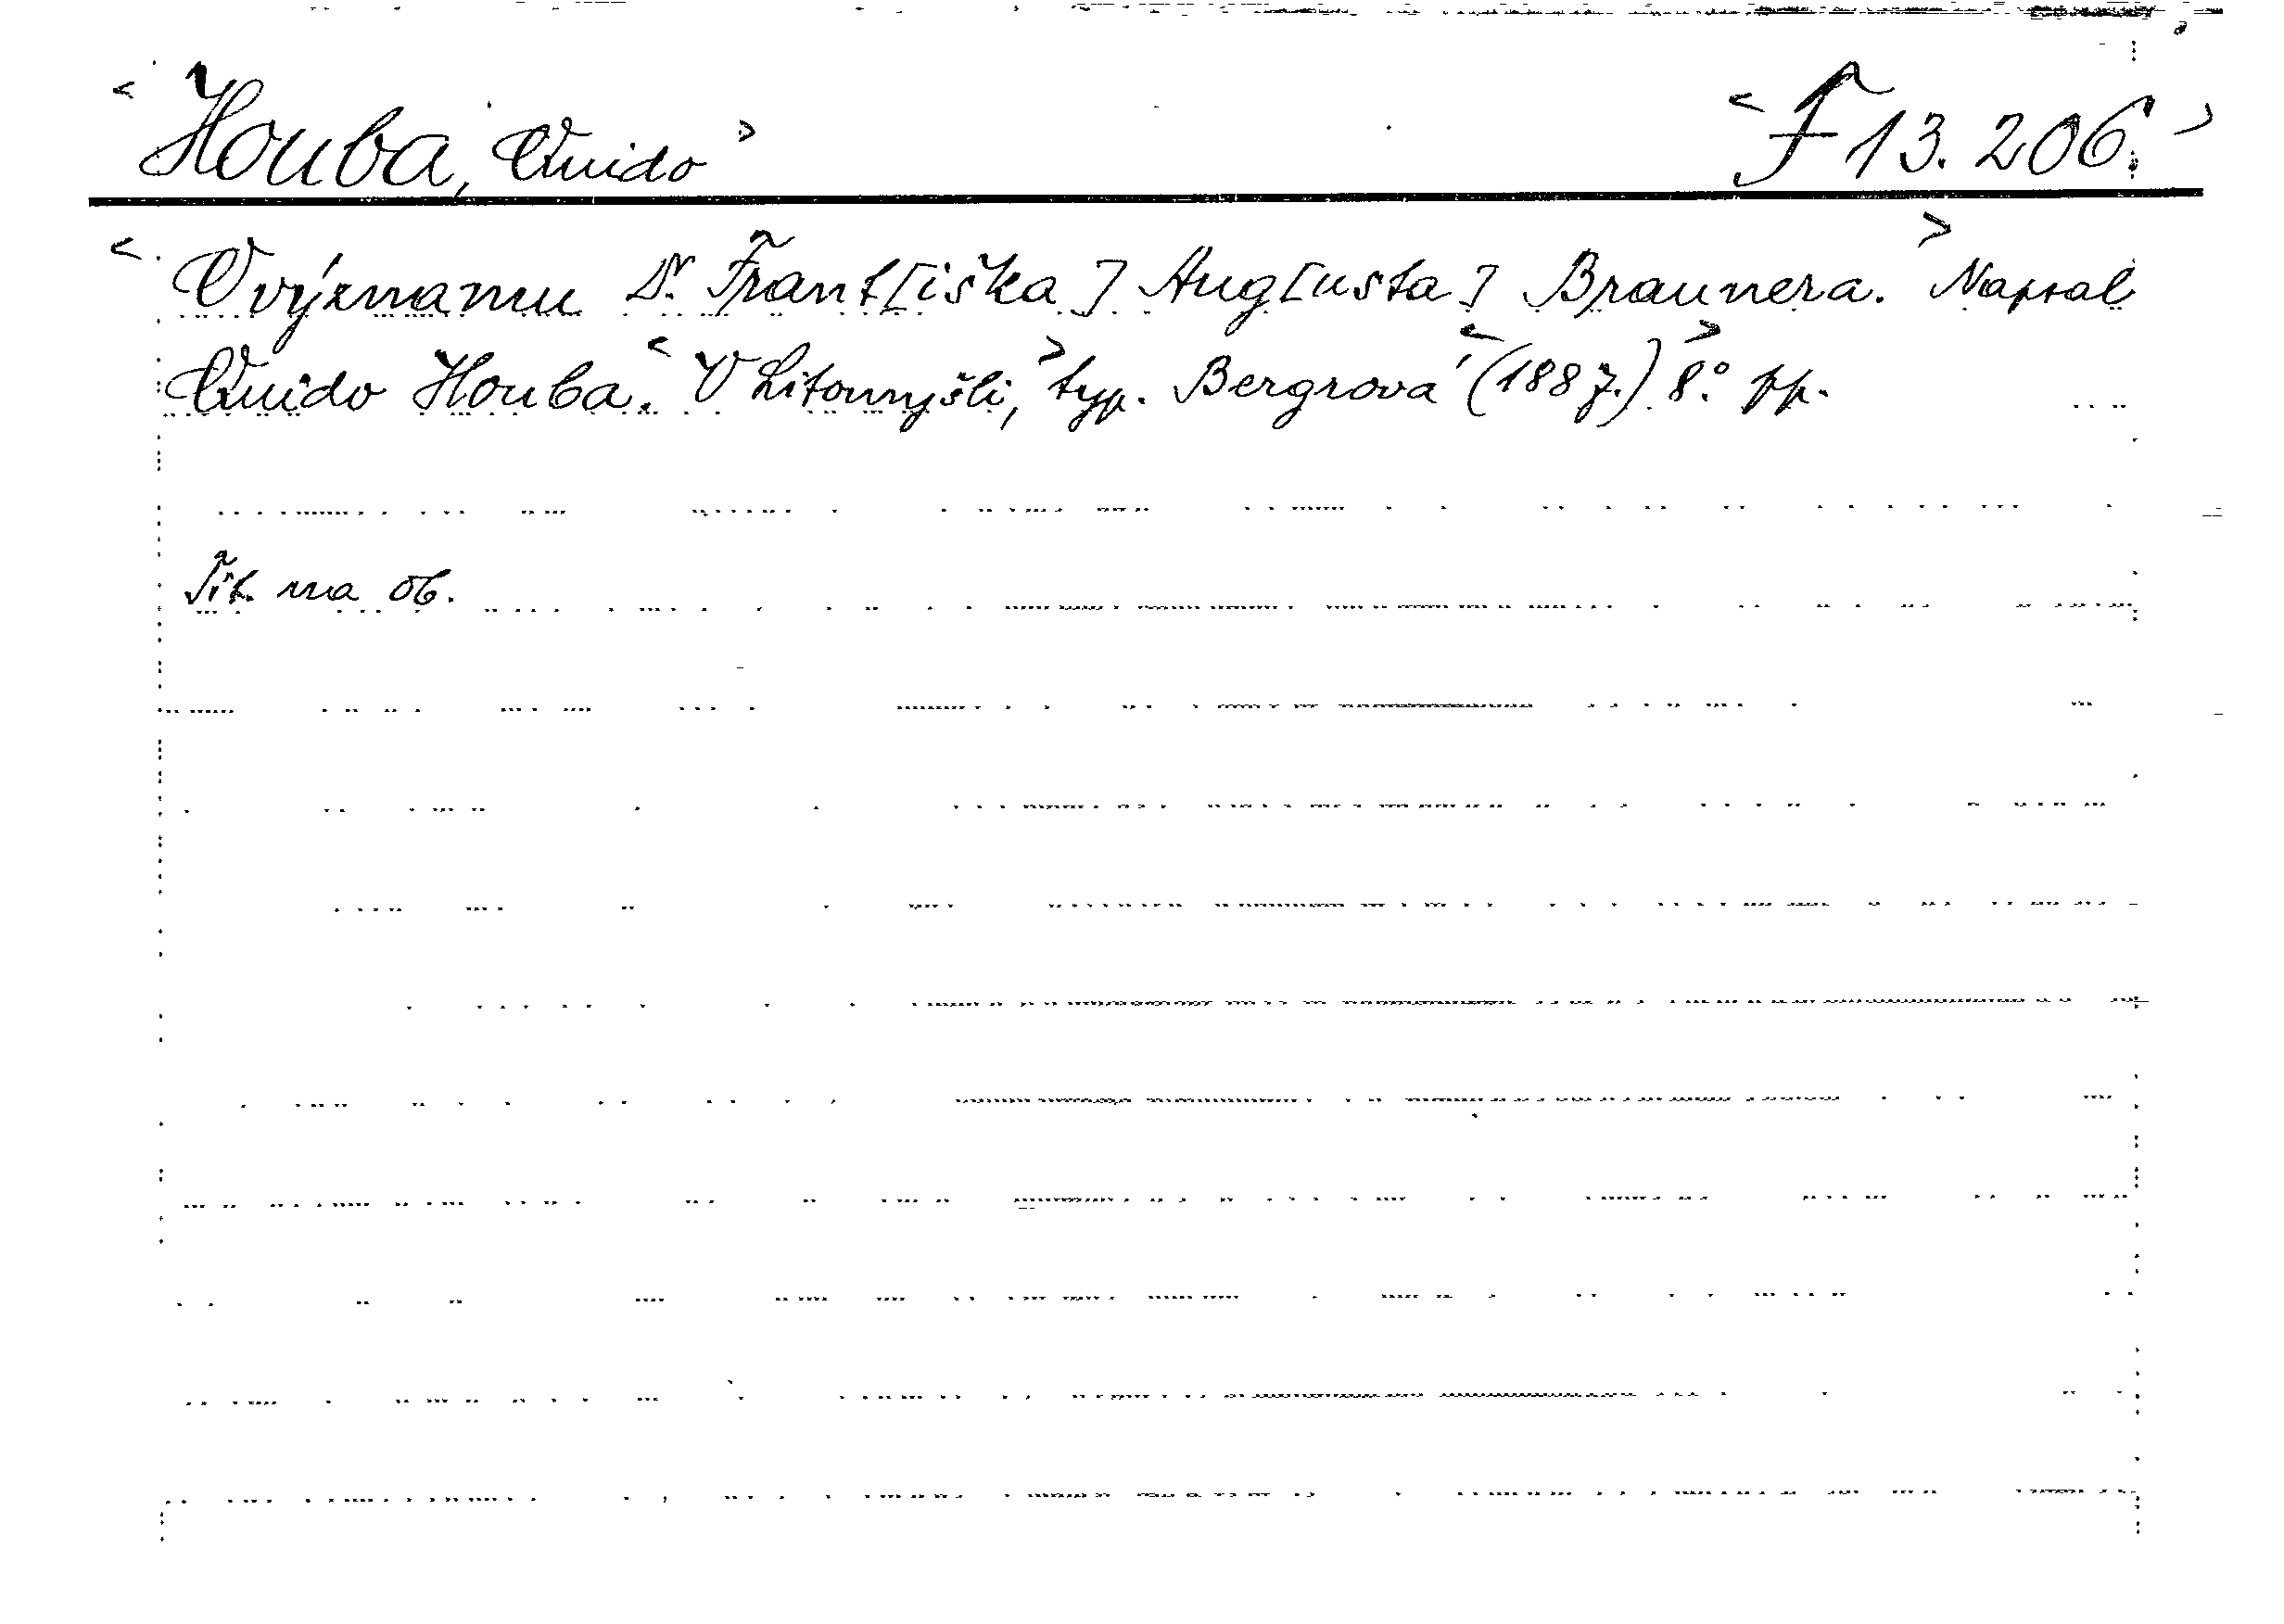 < Houba, Quido >
< F 13.206. >
< O významu Dr. Frant[iška] Aug[usta] Braunera. > Napsal
Quido Houba. < V Litomyšli, > typ. Bergrova < (1887.) > 8.° pp.
Tit. na ob.